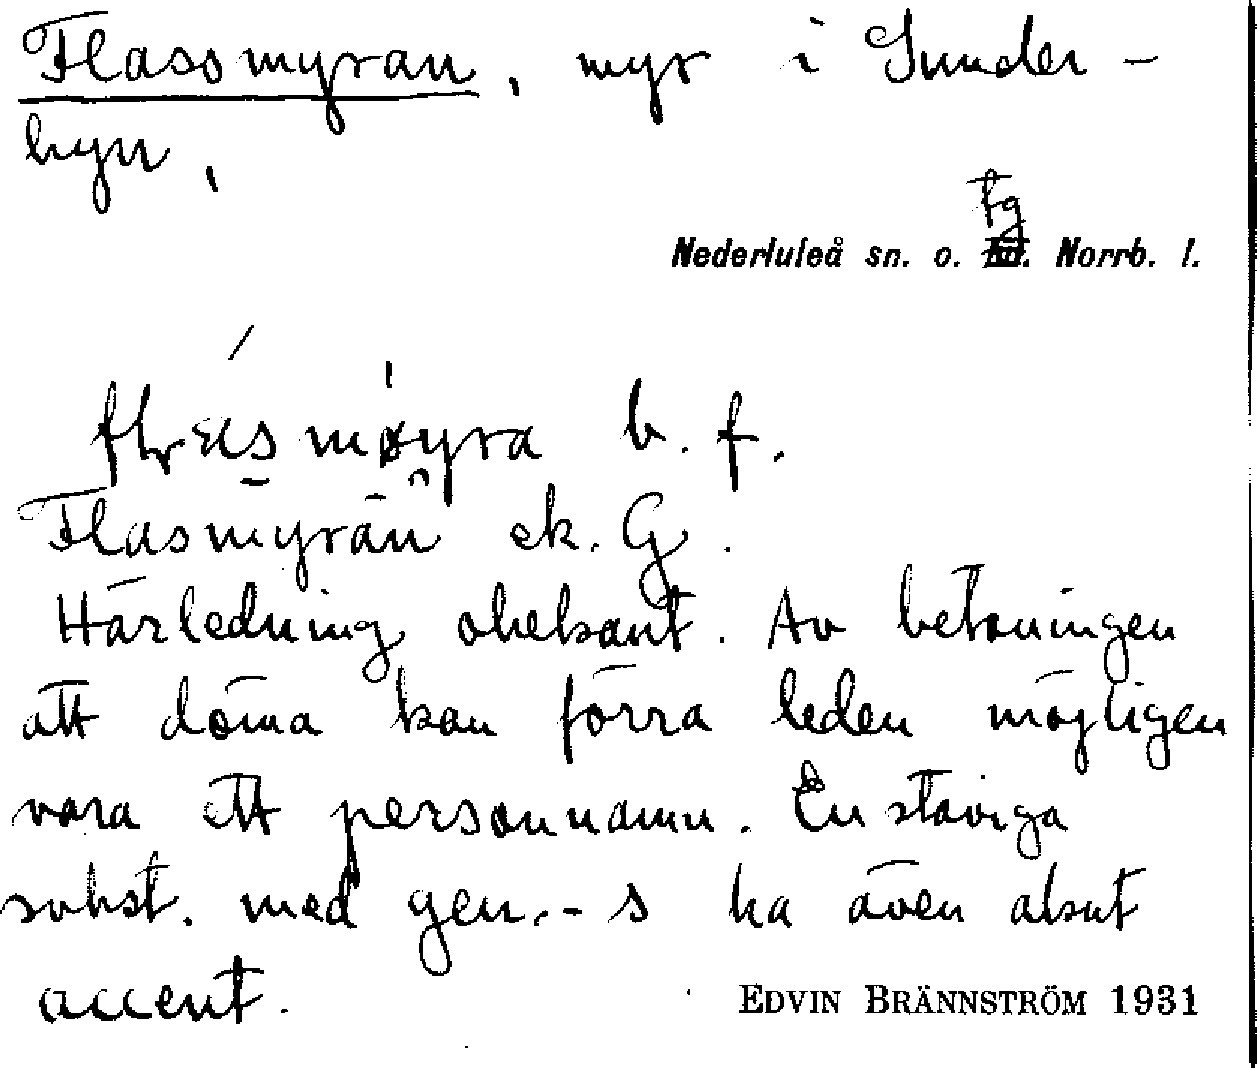 Flassmyran, myr i Sunder-
byn,
tg
Nederluleå sn. o. Norrb. l.
b. f.
Flasmyrän ek. G.
Härledning obekant. Av betoningen
att döma kan förra leden möjligen
vara ett personnamn. Enstaviga
subst. med gen.-s ha även akut
accent.
EDVIN BRÄNNSTRÖM 1931